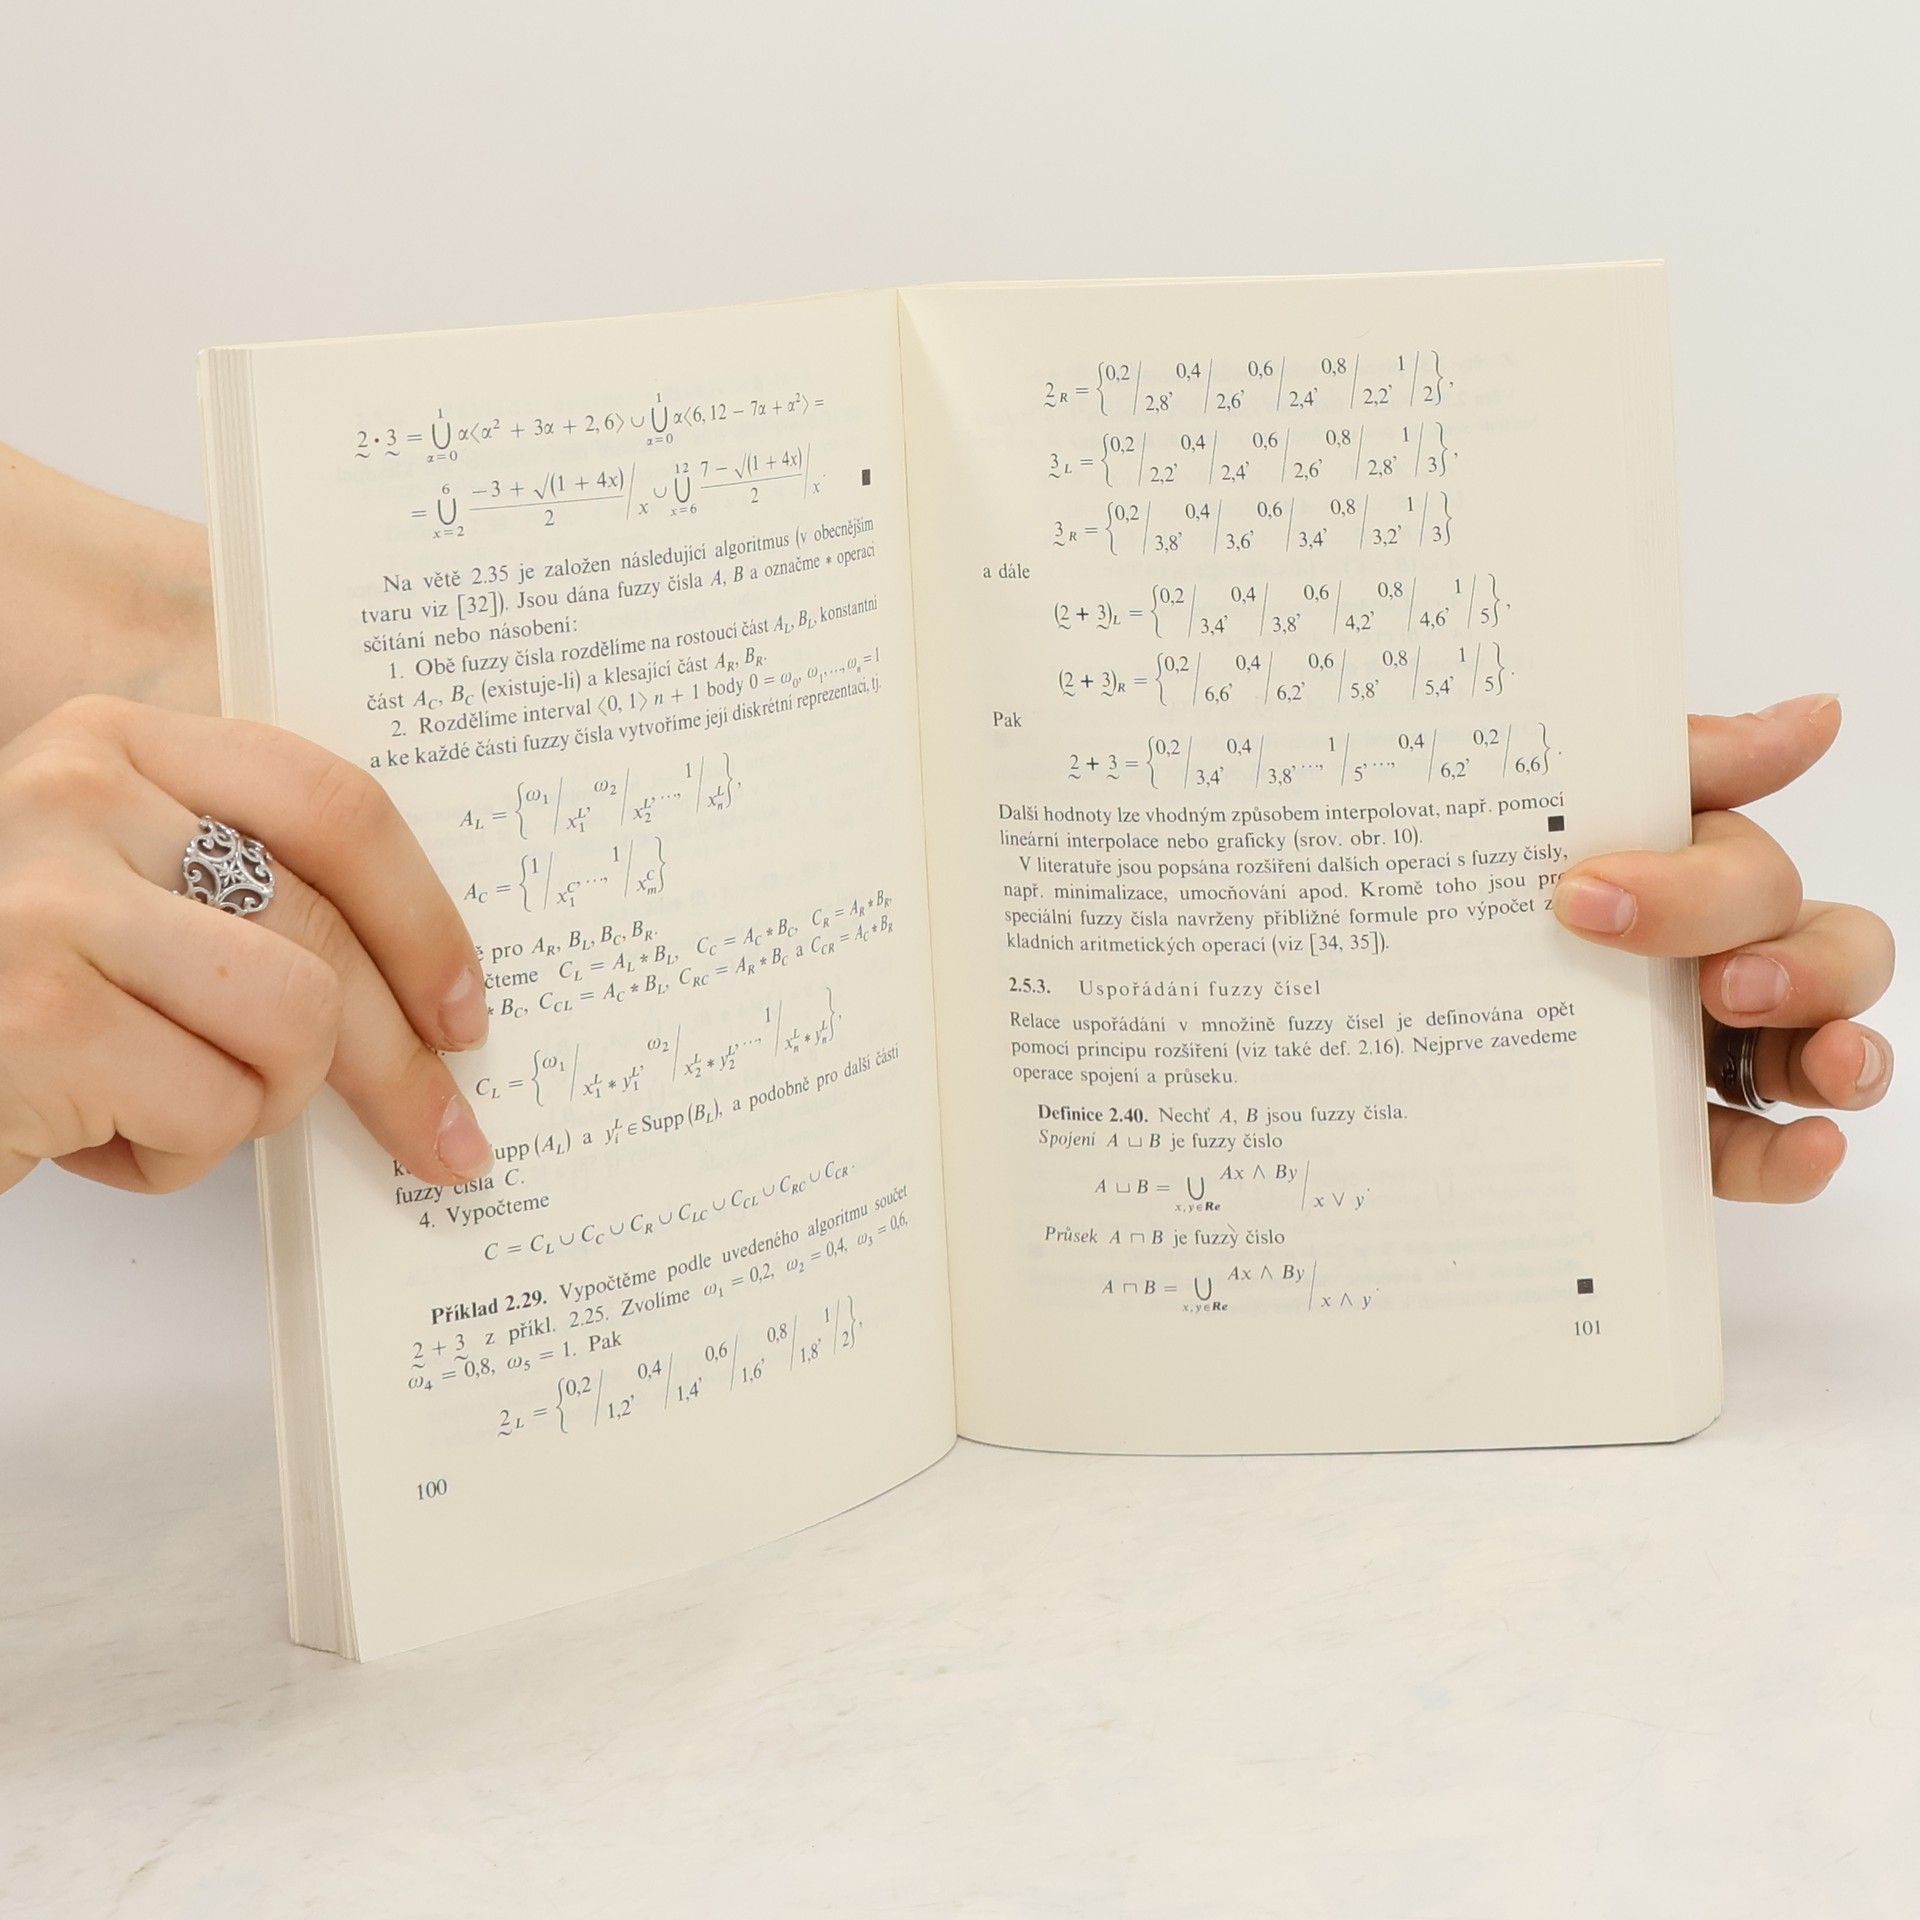 2 · 3 = ⋃_{α=0}^{1} α⟨α² + 3α + 2, 6⟩ ∪ ⋃_{α=0}^{1} α⟨6, 12 − 7α + α²⟩ =
= ⋃_{x=2}^{6} (−3 + √(1 + 4x))/2 / x ∪ ⋃_{x=6}^{12} (7 − √(1 + 4x))/2 / x. ■
Na větě 2.35 je založen následující algoritmus (v obecnějším
tvaru viz [32]). Jsou dána fuzzy čísla A, B a označme * operaci
sčítání nebo násobení:
1. Obě fuzzy čísla rozdělíme na rostoucí část A_L, B_L, konstantní
část A_C, B_C (existuje-li) a klesající část A_R, B_R.
2. Rozdělíme interval ⟨0, 1⟩ n + 1 body 0 = ω₀, ω₁, ..., ωₙ = 1
a ke každé části fuzzy čísla vytvoříme její diskrétní reprezentaci, tj.
A_L = {ω₁/x₁^L, ω₂/x₂^L, ..., 1/xₙ^L},
A_C = {1/x₁^C, ..., 1/x_m^C}
pro A_R, B_L, B_C, B_R.
C_L = A_L * B_L, C_C = A_C * B_C, C_R = A_R * B_R,
* B_C, C_CL = A_C * B_L, C_RC = A_R * B_C a C_CR = A_C * B_R
C_L = {ω₁/x₁^L * y₁^L, ω₂/x₂^L * y₂^L, ..., 1/xₙ^L * yₙ^L},
(A_L) a yᵢ^L ∈ Supp (B_L), a podobně pro další části
fuzzy čísla C.
4. Vypočteme
C = C_L ∪ C_C ∪ C_R ∪ C_LC ∪ C_CL ∪ C_RC ∪ C_CR.
Příklad 2.29. Vypočtěme podle uvedeného algoritmu součet
2 + 3 z příkl. 2.25. Zvolíme ω₁ = 0,2, ω₂ = 0,4, ω₃ = 0,6,
ω₄ = 0,8, ω₅ = 1. Pak
2_L = {0,2/1,2, 0,4/1,4, 0,6/1,6, 0,8/1,8, 1/2},
100
2_R = {0,2/2,8, 0,4/2,6, 0,6/2,4, 0,8/2,2, 1/2},
3_L = {0,2/2,2, 0,4/2,4, 0,6/2,6, 0,8/2,8, 1/3},
3_R = {0,2/3,8, 0,4/3,6, 0,6/3,4, 0,8/3,2, 1/3}
a dále
(2 + 3)_L = {0,2/3,4, 0,4/3,8, 0,6/4,2, 0,8/4,6, 1/5},
(2 + 3)_R = {0,2/6,6, 0,4/6,2, 0,6/5,8, 0,8/5,4, 1/5}.
Pak
2 + 3 = {0,2/3,4, 0,4/3,8, ..., 1/5, ..., 0,4/6,2, 0,2/6,6}.
Další hodnoty lze vhodným způsobem interpolovat, např. pomocí
lineární interpolace nebo graficky (srov. obr. 10). ■
V literatuře jsou popsána rozšíření dalších operací s fuzzy čísly,
např. minimalizace, umocňování apod. Kromě toho jsou pro
speciální fuzzy čísla navrženy přibližné formule pro výpočet
kladních aritmetických operací (viz [34, 35]).
2.5.3. Uspořádání fuzzy čísel
Relace uspořádání v množině fuzzy čísel je definována opět
pomocí principu rozšíření (viz také def. 2.16). Nejprve zavedeme
operace spojení a průseku.
Definice 2.40. Nechť A, B jsou fuzzy čísla.
Spojení A ⊔ B je fuzzy číslo
A ⊔ B = ⋃_{x,y∈Re} Ax ∧ By / x ∨ y.
Průsek A ⊓ B je fuzzy číslo
A ⊓ B = ⋃_{x,y∈Re} Ax ∧ By / x ∧ y. ■
101